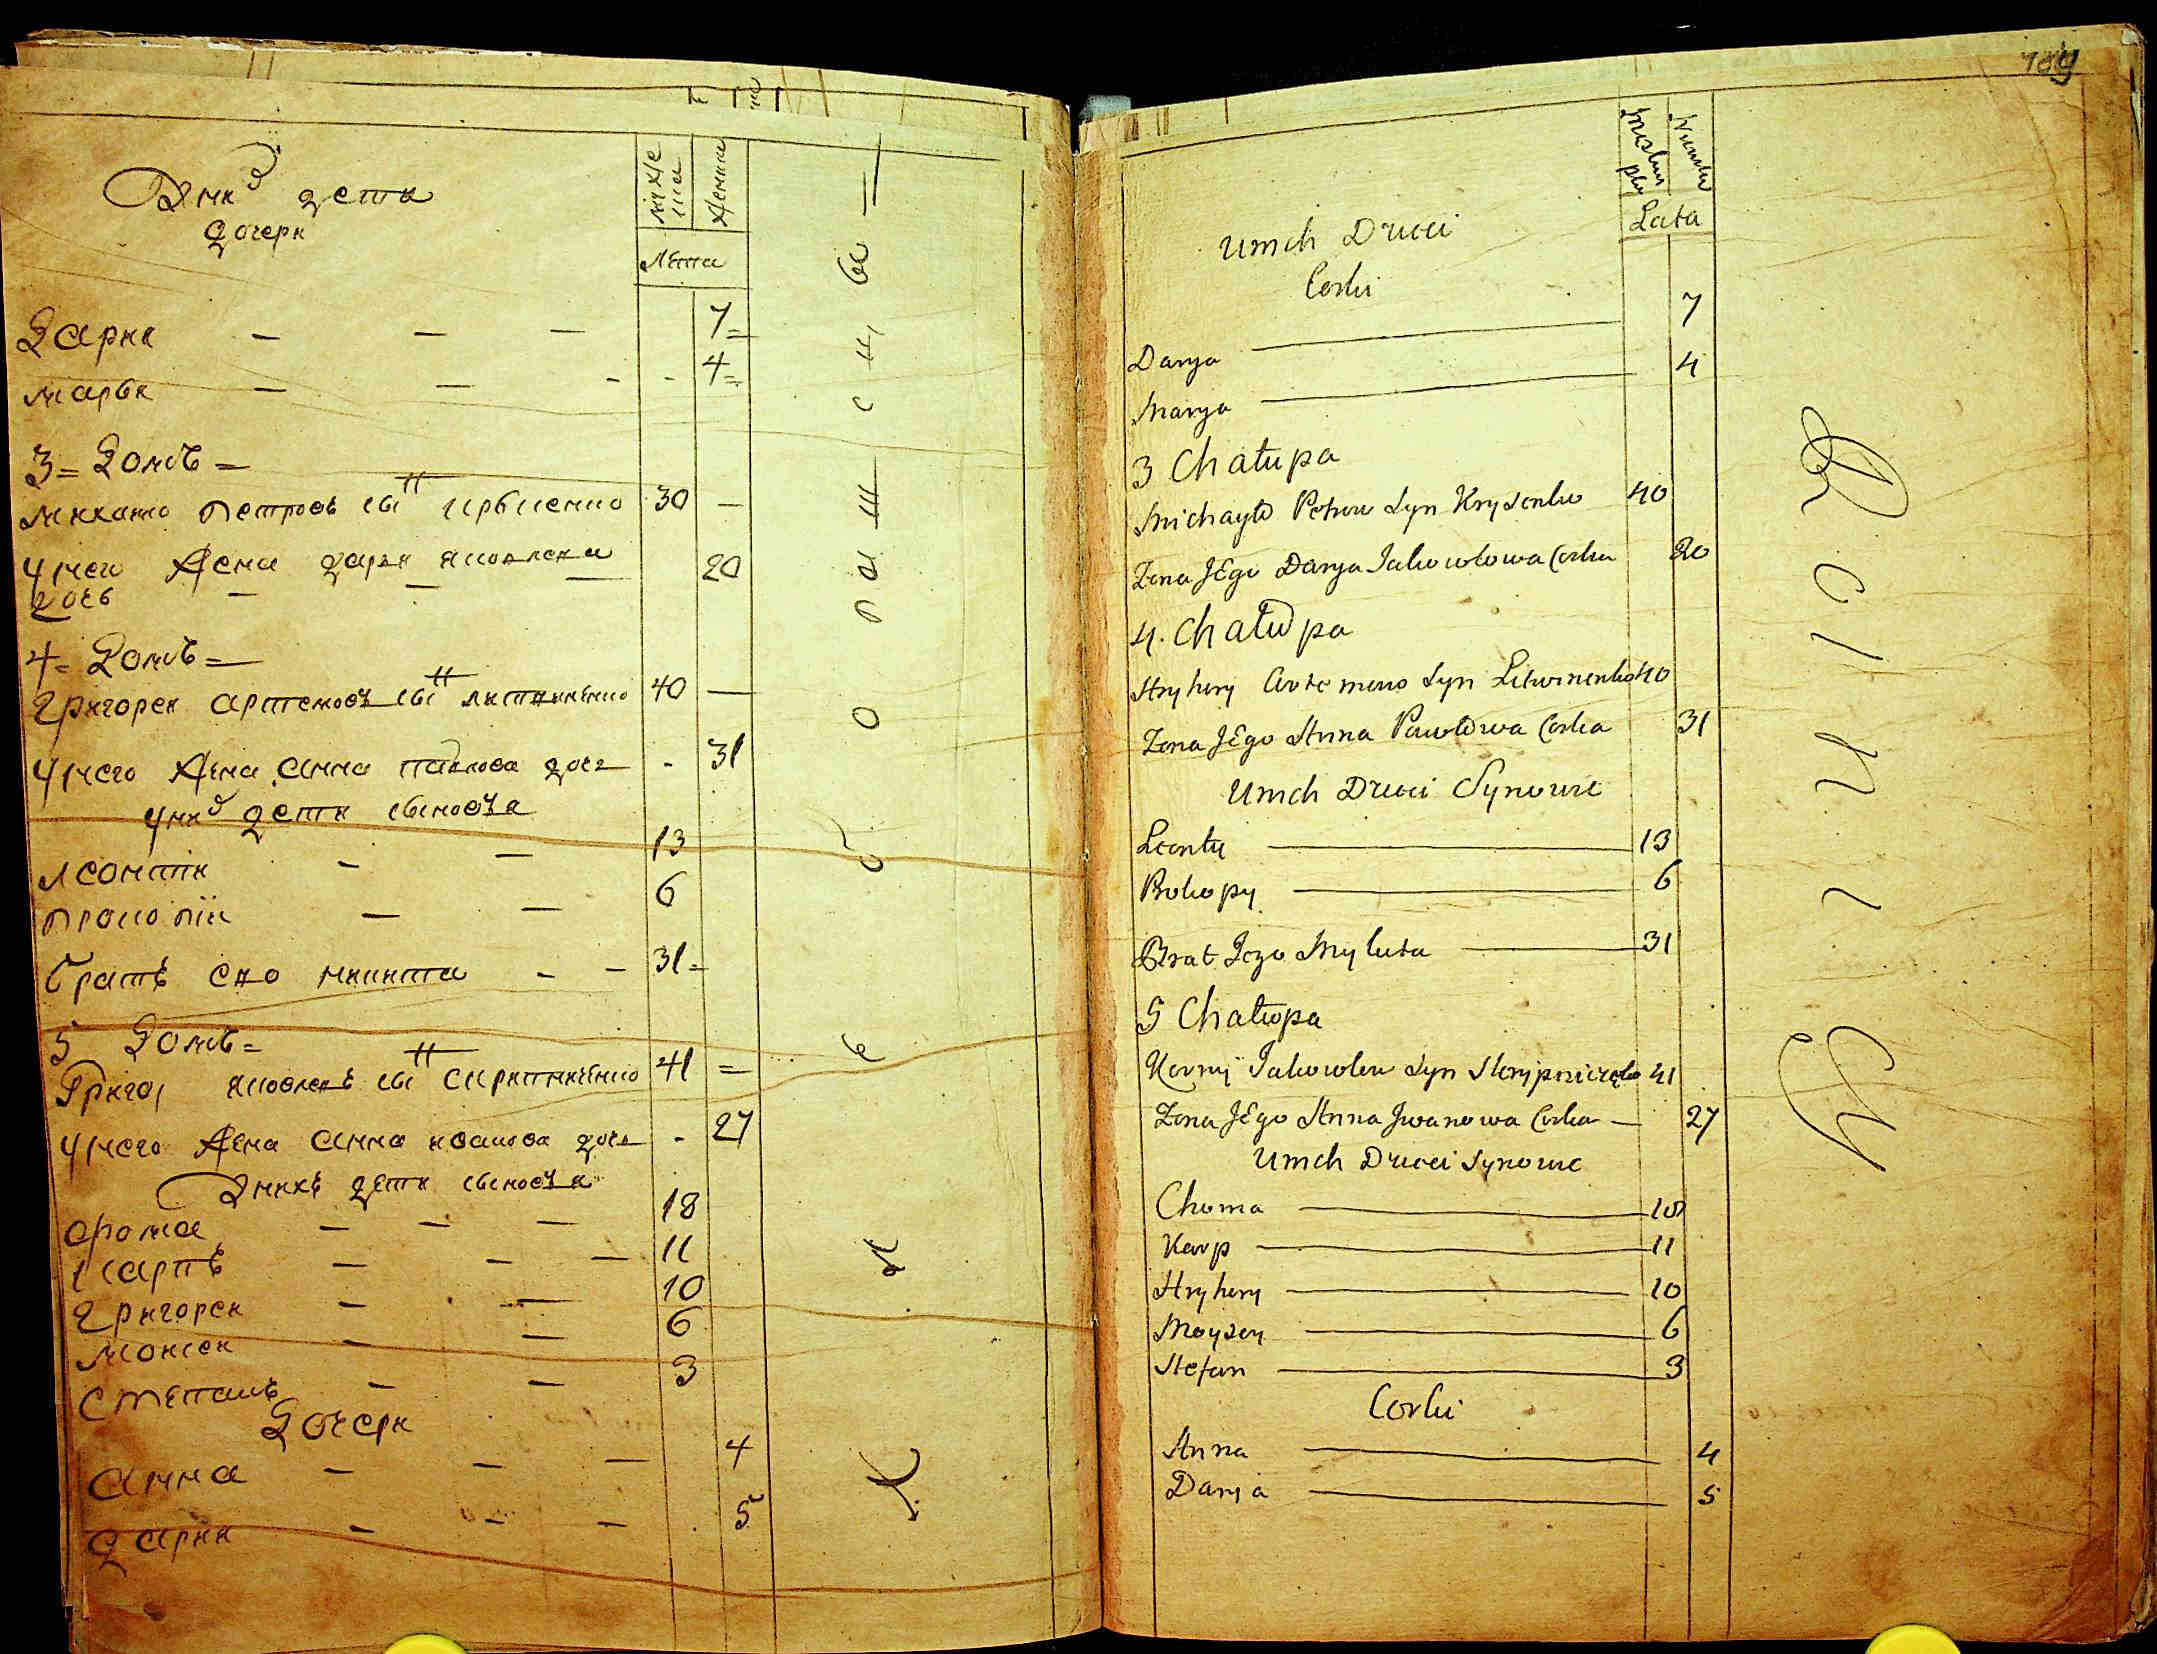 109
У них дети
дочери
мужеска
женска
Лета
Дария — — — 7
Марья — — — 4
3 = Домъ =
Михаило Петровъ сынъ Крысенко 30 —
У него жена Дарья Яковлева 20
дочь — — —
4 = Домъ =
Григорей Артемовъ сынъ Литвиненко 40 —
У него жена Анна Павлова дочь - 31
У них дети сыновья
Леонтій — — 13
Прокопій — — 6
братъ его Микита — — 31
5 Домъ =
Яковлевъ сынъ Скрипниченко 41 =
У него жена Анна Иванова дочь - 27
У нихъ дети сыновья
Фома — — — 18
Карпъ — — — 11
Григорей — — 10
Моисей — — 6
Степанъ — — 3
Дочери
Анна — — — 4
Дария — — — 5
К
Lata
Unich Dzieci
Corki
Darya — 7
Marya — 4
3 Chałupa
Michayło Petrow Syn Krysenko 40
Zona JEgo Darya Jakowlowa Corka 20
4. Chałupa
Hryhery Artemow Syn Litwinenko 40
Zona JEgo Anna Pawłowa Corka 31
Unich Dzieci Synowie
Leonty — 13
Prokopy — 6
Brat Jego Mykita — 31
5 Chałupa
Jakowlew Syn Skrypniczenko 41
Zona JEgo Anna Jwanowa Corka — 27
Unich Dzieci Synowie
Choma — 18
Karp — 11
Hryhery — 10
Moysey — 6
Stefan — 3
Corki
Anna — 4
Darja — 5